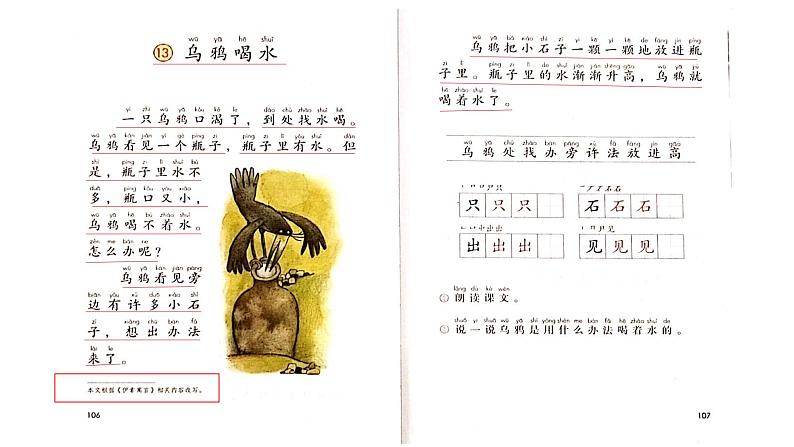 wū yā hē shuǐ
13 乌鸦喝水
yì zhī wū yā kǒu kě le dào chù zhǎo shuǐ hē
一只乌鸦口渴了，到处找水喝。
wū yā kàn jiàn yí gè píng zi píng zi lǐ yǒu shuǐ dàn
乌鸦看见一个瓶子，瓶子里有水。但
shì píng zi lǐ shuǐ bù
是，瓶子里水不
duō píng kǒu yòu xiǎo
多，瓶口又小，
wū yā hē bù zháo shuǐ
乌鸦喝不着水。
zěn me bàn ne
怎么办呢？
wū yā kàn jiàn páng
乌鸦看见旁
biān yǒu xǔ duō xiǎo shí
边有许多小石
zǐ xiǎng chū bàn fǎ
子，想出办法
lái le
来了。
本文根据《伊索寓言》相关内容改写。
106
wū yā bǎ xiǎo shí zǐ yì kē yì kē de fàng jìn píng
乌鸦把小石子一颗一颗地放进瓶
zi lǐ píng zi lǐ de shuǐ jiàn jiàn shēng gāo wū yā jiù
子里。瓶子里的水渐渐升高，乌鸦就
hē zháo shuǐ le
喝着水了。
wū yā chù zhǎo bàn páng xǔ fǎ fàng jìn gāo
乌鸦处找办旁许法放进高
只只只 石石石
出出出 见见见
lǎng dú kè wén
朗读课文。
shuō yi shuō wū yā shì yòng shén me bàn fǎ hē zháo shuǐ de
说一说乌鸦是用什么办法喝着水的。
107